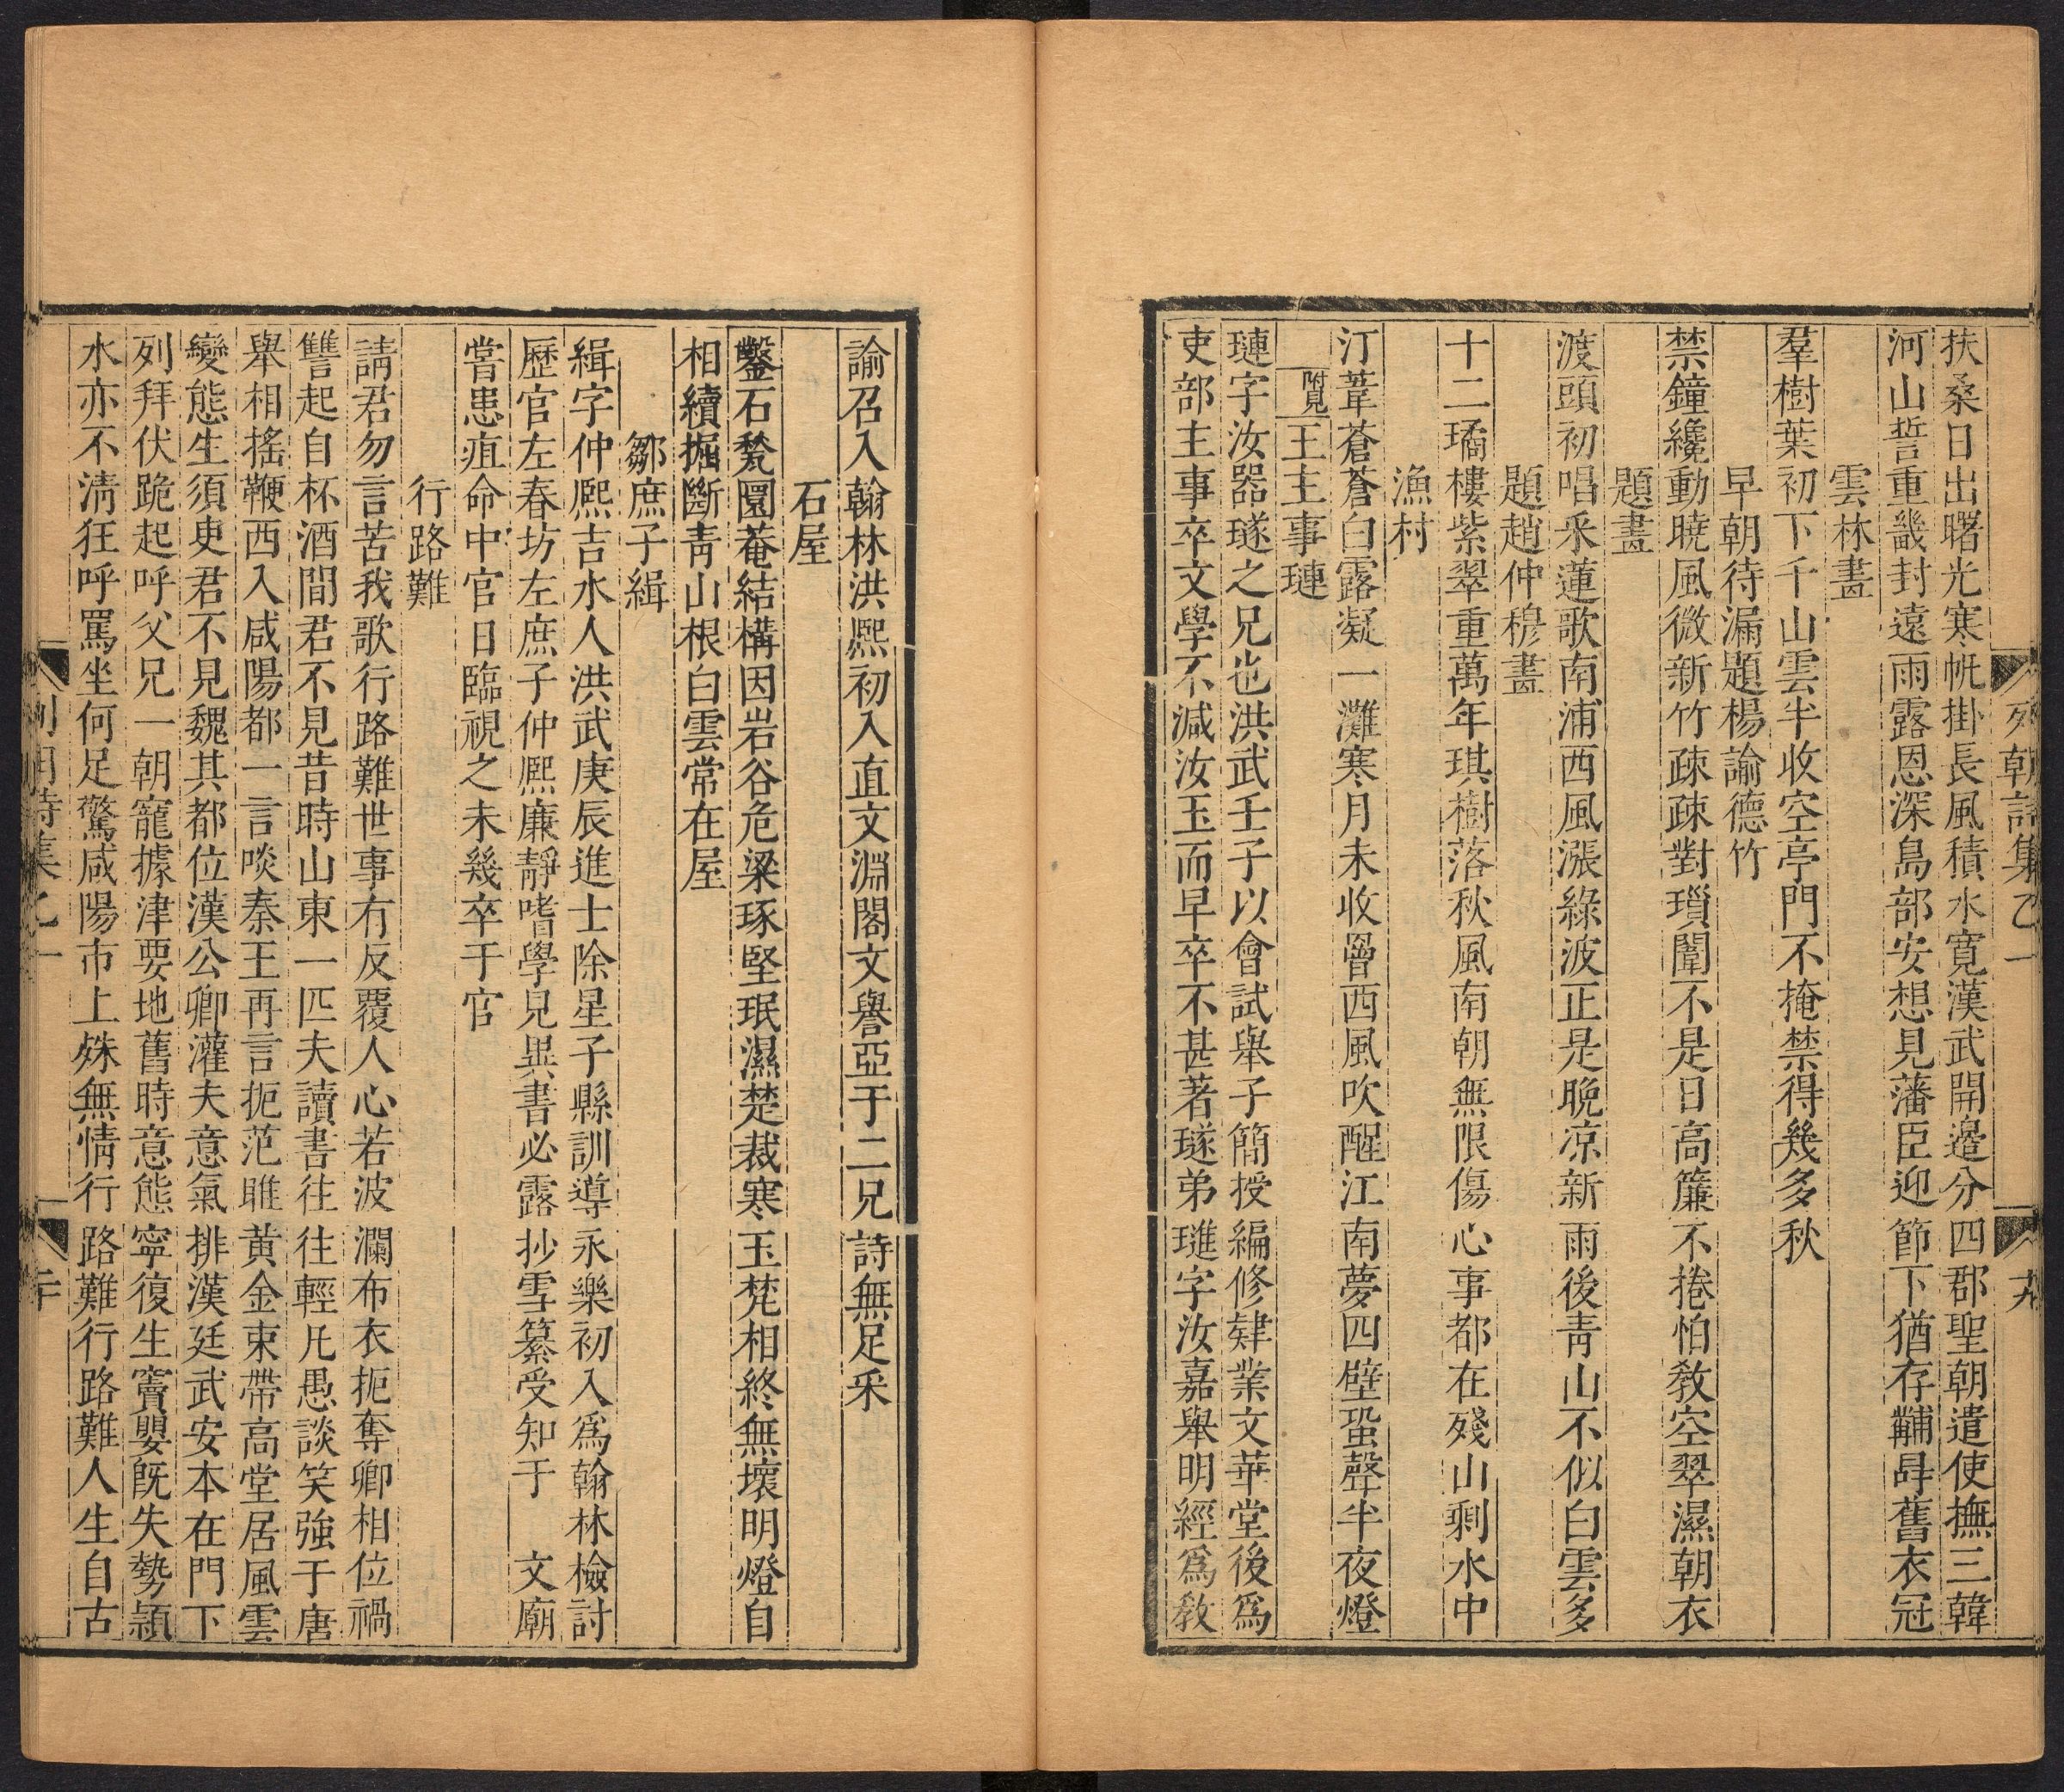 列朝詩集乙一 十九
扶桑日出曙光寒帆掛長風積水寬漢武開邊分四郡聖朝遣使撫三韓
河山誓重畿封遠雨露恩深島部安想見藩臣迎節下猶存黼冔舊衣冠
雲林畫
羣樹葉初下千山雲半收空亭門不掩禁得幾多秋
早朝待漏題楊諭德竹
禁鐘纔動曉風微新竹疎疎對瑣闈不是日高簾不捲怕教空翠濕朝衣
題畫
渡頭初唱采蓮歌南浦西風漲綠波正是晚凉新雨後青山不似白雲多
題趙仲穆畫
十二璚樓紫翠重萬年琪樹落秋風南朝無限傷心事都在殘山剩水中
漁村
汀葦蒼蒼白露凝一灘寒月未收罾西風吹醒江南夢四壁蛩聲半夜燈
附見王主事璉
璉字汝器璲之兄也洪武壬子以會試舉子簡授編修肄業文華堂後爲
吏部主事卒文學不減汝玉而早卒不甚著璲弟璡字汝嘉舉明經爲教
諭召入翰林洪熙初入直文淵閣文譽亞于二兄詩無足采
石屋
鑿石甃園菴結構因岩谷危梁琢堅珉濕楚裁寒玉梵相終無壞明燈自
相續掘斷青山根白雲常在屋
鄒庶子緝
緝字仲熙吉水人洪武庚辰進士除星子縣訓導永樂初入爲翰林檢討
歷官左春坊左庶子仲熙廉靜嗜學見異書必露抄雪纂受知于　文廟
嘗患疽命中官日臨視之未幾卒于官
行路難
請君勿言苦我歌行路難世事有反覆人心若波瀾布衣扼奪卿相位禍
讐起自杯酒間君不見昔時山東一匹夫讀書往往輕凡愚談笑強于唐
舉相搖鞭西入咸陽都一言啖秦王再言扼范雎黃金束帶高堂居風雲
變態生須臾君不見魏其都位漢公卿灌夫意氣排漢廷武安本在門下
列拜伏跪起呼父兄一朝寵據津要地舊時意態寧復生竇嬰旣失勢潁
水亦不清狂呼罵坐何足驚咸陽市上殊無情行路難行路難人生自古
列朝詩集乙一 二十